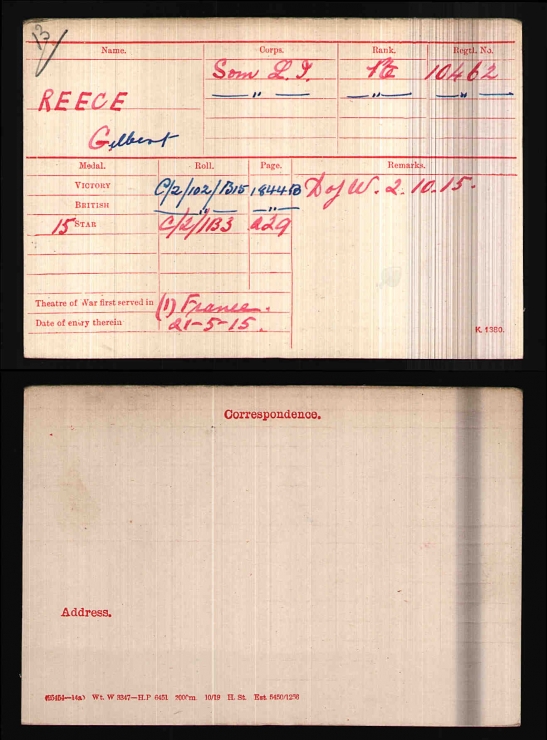 Name. Corps. Rank. Regtl. No.
Som L.I. Pte 10462
REECE —"— —"— —"—
Gilbert
Medal. Roll. Page. Remarks.
VICTORY C/2/102/B15 1844B D of W. 2.10.15.
BRITISH —"— —"—
15 STAR C/2/1B3 a29
Theatre of War first served in (1) France.
Date of entry therein 21-5-15.
K. 1380.
Correspondence.
Address.
Wt. W 3347—H.P 6451 200'm. 10/19 H. St.